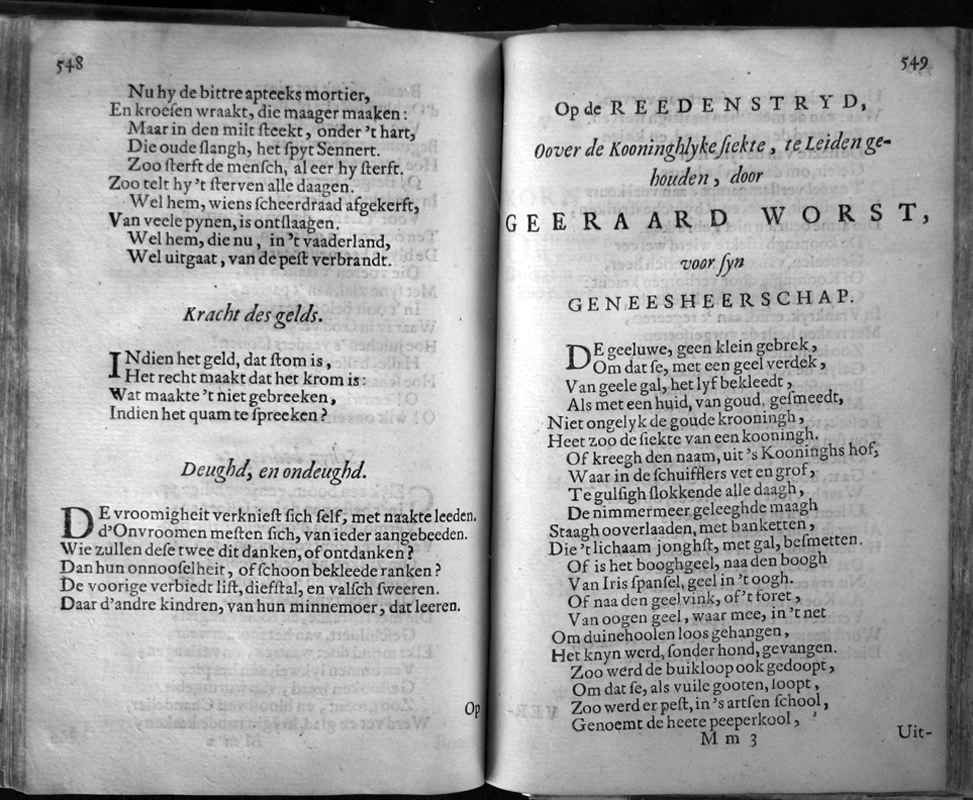 548
Nu hy de bittre apteeks mortier,
En kroeſen wraakt, die maager maaken:
Maar in den milt ſteekt, onder 't hart,
Die oude ſlangh, het ſpyt Sennert.
Zoo ſterft de menſch, al eer hy ſterft.
Zoo telt hy 't ſterven alle daagen.
Wel hem, wiens ſcheerdraad afgekerft,
Van veele pynen, is ontſlaagen.
Wel hem, die nu, in 't vaaderland,
Wel uitgaat, van de peſt verbrandt.
Kracht des gelds.
INdien het geld, dat ſtom is,
Het recht maakt dat het krom is:
Wat maakte 't niet gebreeken,
Indien het quam te ſpreeken?
Deughd, en ondeughd.
DE vroomigheit verknieſt ſich ſelf, met naakte leeden.
d'Onvroomen meſten ſich, van ieder aangebeeden.
Wie zullen deſe twee dit danken, of ontdanken?
Dan hun onnooſelheit, of ſchoon bekleede ranken?
De voorige verbiedt liſt, diefſtal, en valſch ſweeren.
Daar d'andre kindren, van hun minnemoer, dat leeren.
Op
549
Op de REEDENSTRYD,
Oover de Kooninghlyke ſiekte, te Leiden ge-
houden, door
GEERAARD WORST,
voor ſyn
GENEESHEERSCHAP.
DE geeluwe, geen klein gebrek,
Om dat ſe, met een geel verdek,
Van geele gal, het lyf bekleedt,
Als met een huid, van goud, geſmeedt,
Niet ongelyk de goude krooningh,
Heet zoo de ſiekte van een kooningh.
Of kreegh den naam, uit 's Kooninghs hof,
Waar in de ſchuifflers vet en grof,
Te gulſigh ſlokkende alle daagh,
De nimmermeer geleeghde maagh
Staagh ooverlaaden, met banketten,
Die 't lichaam jonghſt, met gal, beſmetten.
Of is het booghgeel, naa den boogh
Van Iris ſpanſel, geel in 't oogh.
Of naa den geelvink, of 't foret,
Van oogen geel, waar mee, in 't net
Om duinehoolen loos gehangen,
Het knyn werd, ſonder hond, gevangen.
Zoo werd de buikloop ook gedoopt,
Om dat ſe, als vuile gooten, loopt,
Zoo werd er peſt, in 's artſen ſchool,
Genoemt de heete peeperkool,
Mm 3
Uit-